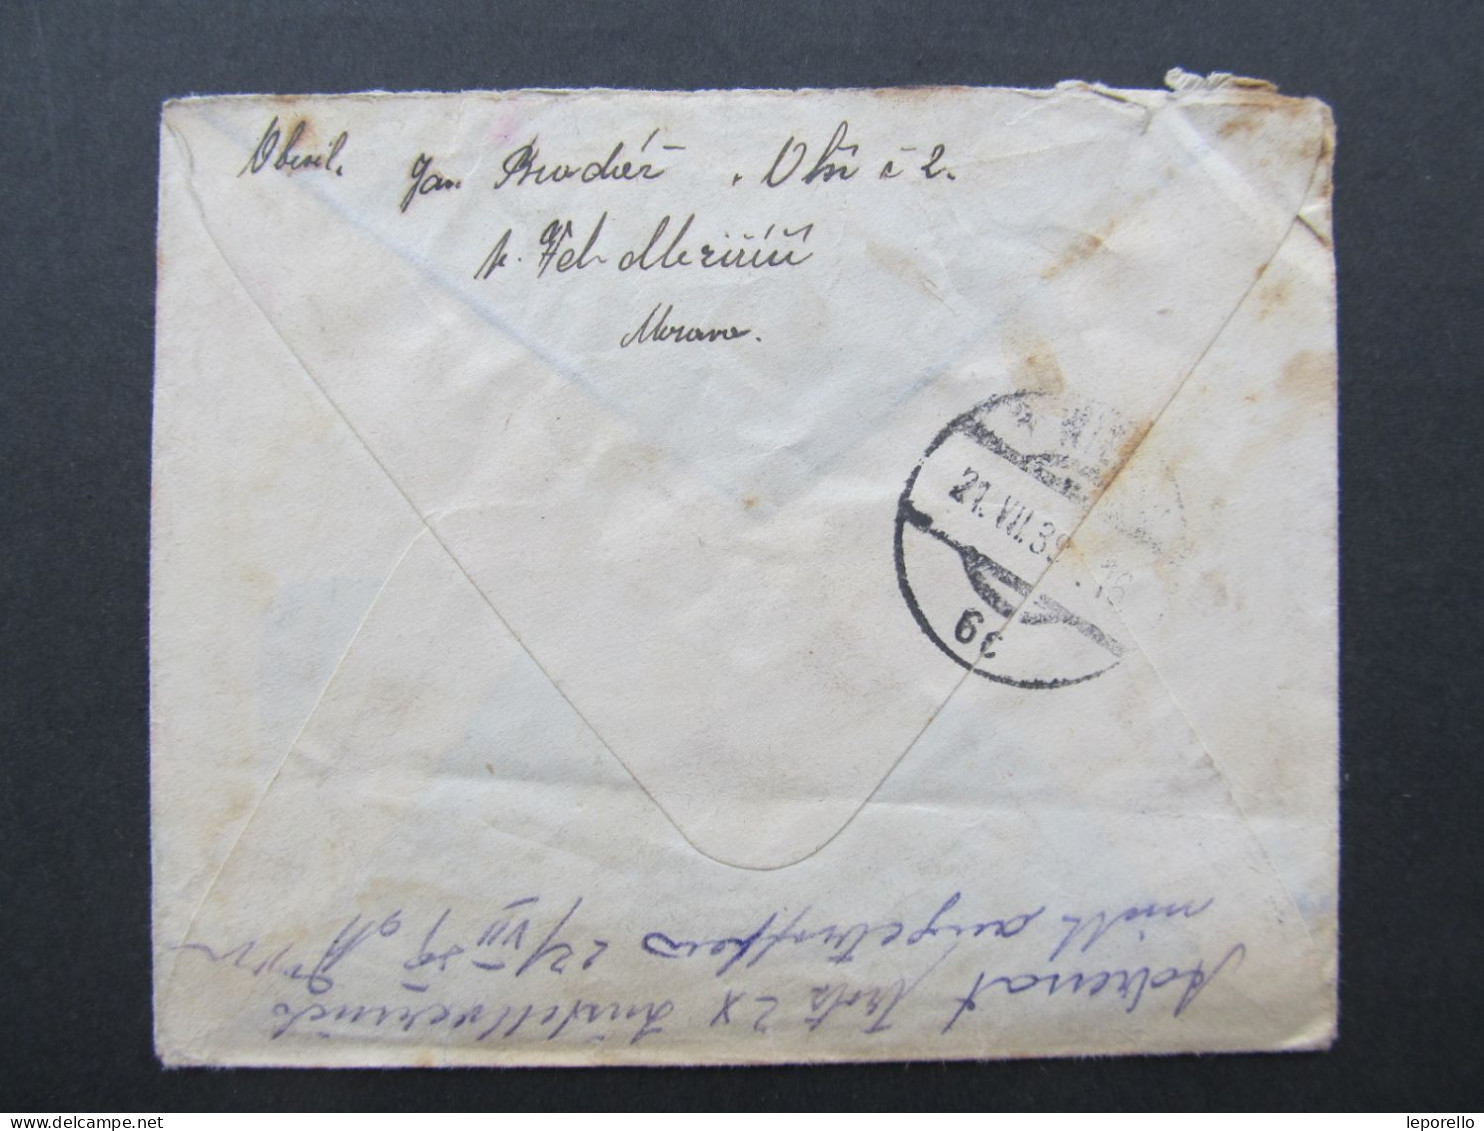 Odesil. Jan Brodář. Olší č 2.
p. Velk Meziříčí
Morava.
* WIEN
21. VII. 39. 16
66
Adressat trotz 2x Zustellversuch
nicht angetroffen 22/VII 39
leporello